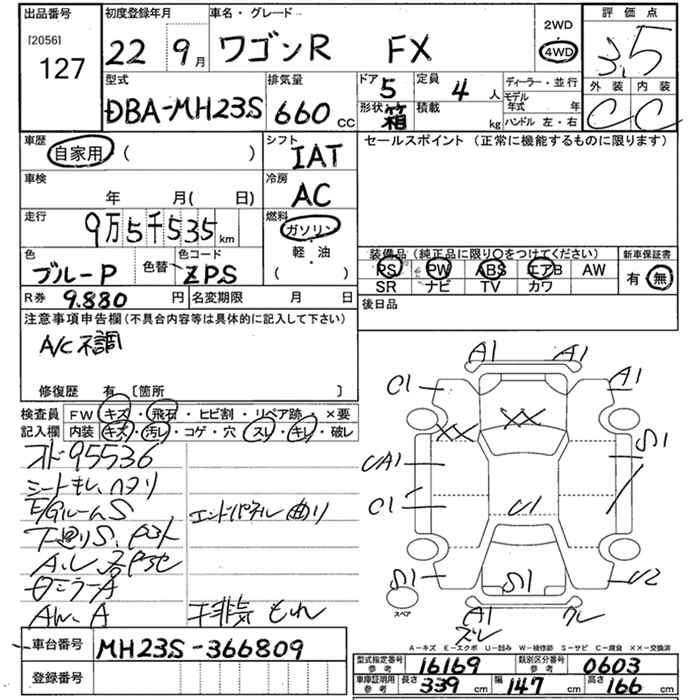 出品番号 [2056] 127
初度登録年月 22年 9月
車名・グレード ワゴンR FX
2WD 4WD
評価点 3.5
外装 C 内装 C
型式 DBA-MH23S
排気量 660 CC
ドア 5 形状 箱
定員 4人 積載 kg
ディーラー・並行
モデル年式 年
ハンドル 左・右
車歴 自家用 ( )
シフト IAT
セールスポイント (正常に機能するものに限ります)
車検 年 月( 日)
冷房 AC
走行 9万5千535 km
燃料 ガソリン 軽・油 ( )
色 ブルーP 色替 色コード ZPS
装備品 (純正品に限り○をつけてください) 新車保証書
PS PW ABS エアB AW 有 無
SR ナビ TV カワ
R券 9.880円 名変期限 月 日
後日品
注意事項申告欄 (不具合内容等は具体的に記入して下さい)
A/C不調
修復歴 有 [箇所 ]
検査員記入欄 FW キズ・飛石・ヒビ割・リペア跡・×要
内装 キズ・汚レ・コゲ・穴・スレ・キレ・破レ
オド95536
E/GルームS
エンドパネル曲り
AW.A
車台番号 MH23S-366809
登録番号
A1 A1
C1 A1
XX XX
S1
UA1
C1 U1
S1 S1 U2
スペア
A1
A-キズ E-エクボ U-凹み W-補修跡 S-サビ C-腐食 XX-交換済
型式指定番号 参考 16169 類別区分番号 参考 0603
車庫証明用 参考 長さ 339 cm 幅 147 cm 高さ 166 cm